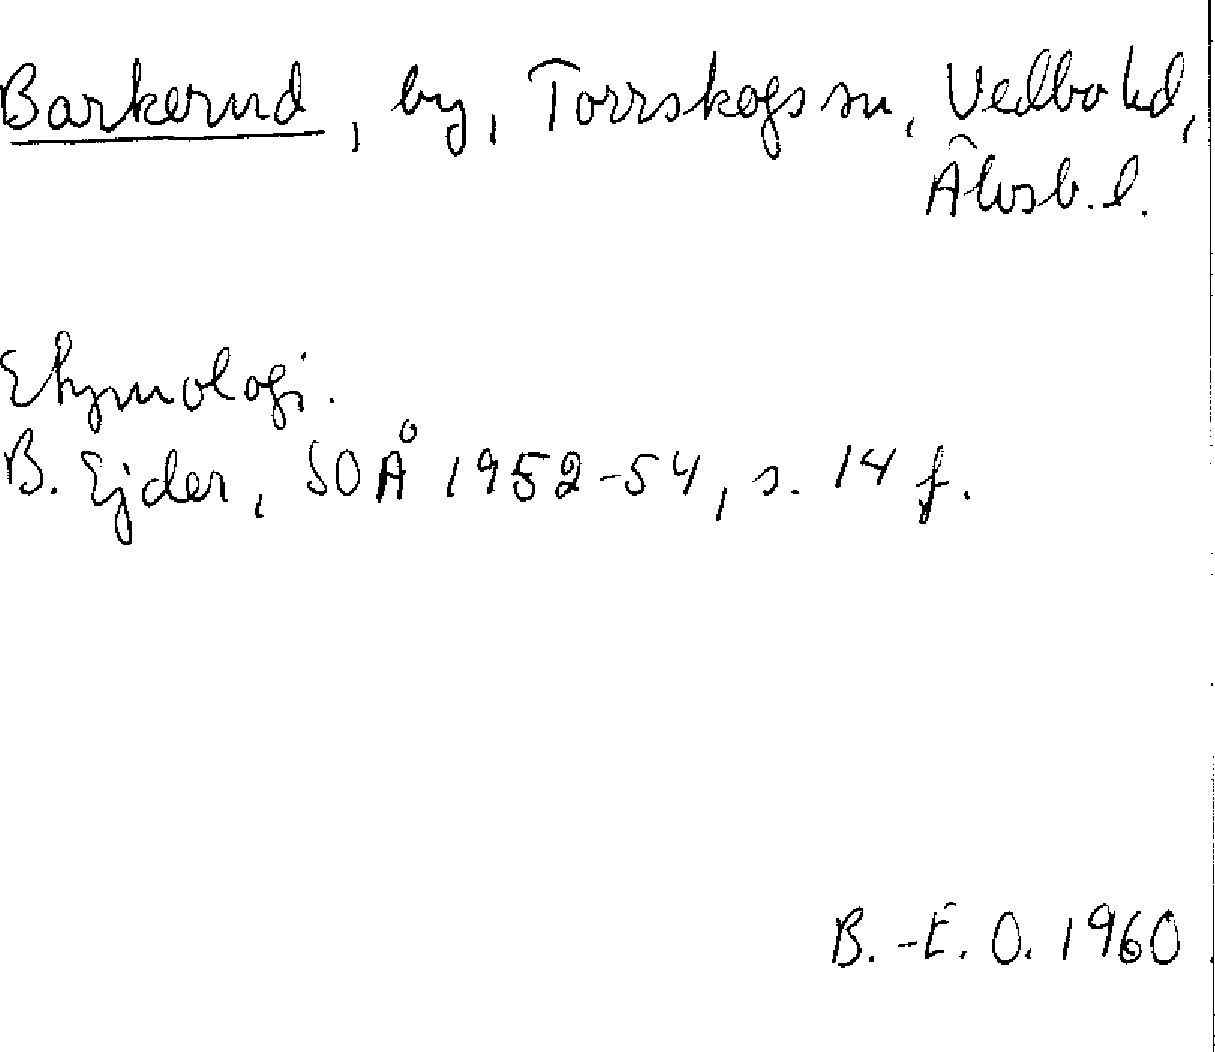 Barkerud, by, Torrskogs sn, Vedbo hd,
Älvsb. l.
Etymologi.
B. Ejder, SOÅ 1952-54, s. 14 f.
B.-E. O. 1960